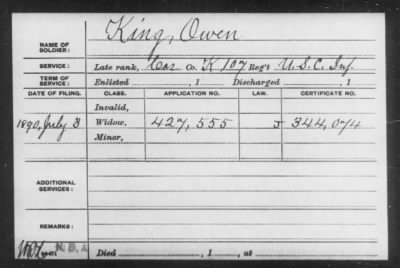 King, Owen
NAME OF SOLDIER:
SERVICE: Late rank, Cor Co. K 107 Reg't U.S.C. Inf.
TERM OF SERVICE: Enlisted , 1 Discharged , 1
DATE OF FILING. CLASS. APPLICATION NO. LAW. CERTIFICATE NO.
Invalid,
1890, July 3 Widow, 427,555 J 344,074
Minor,
ADDITIONAL SERVICES:
REMARKS:
N.B.A.
Died , 1 , at